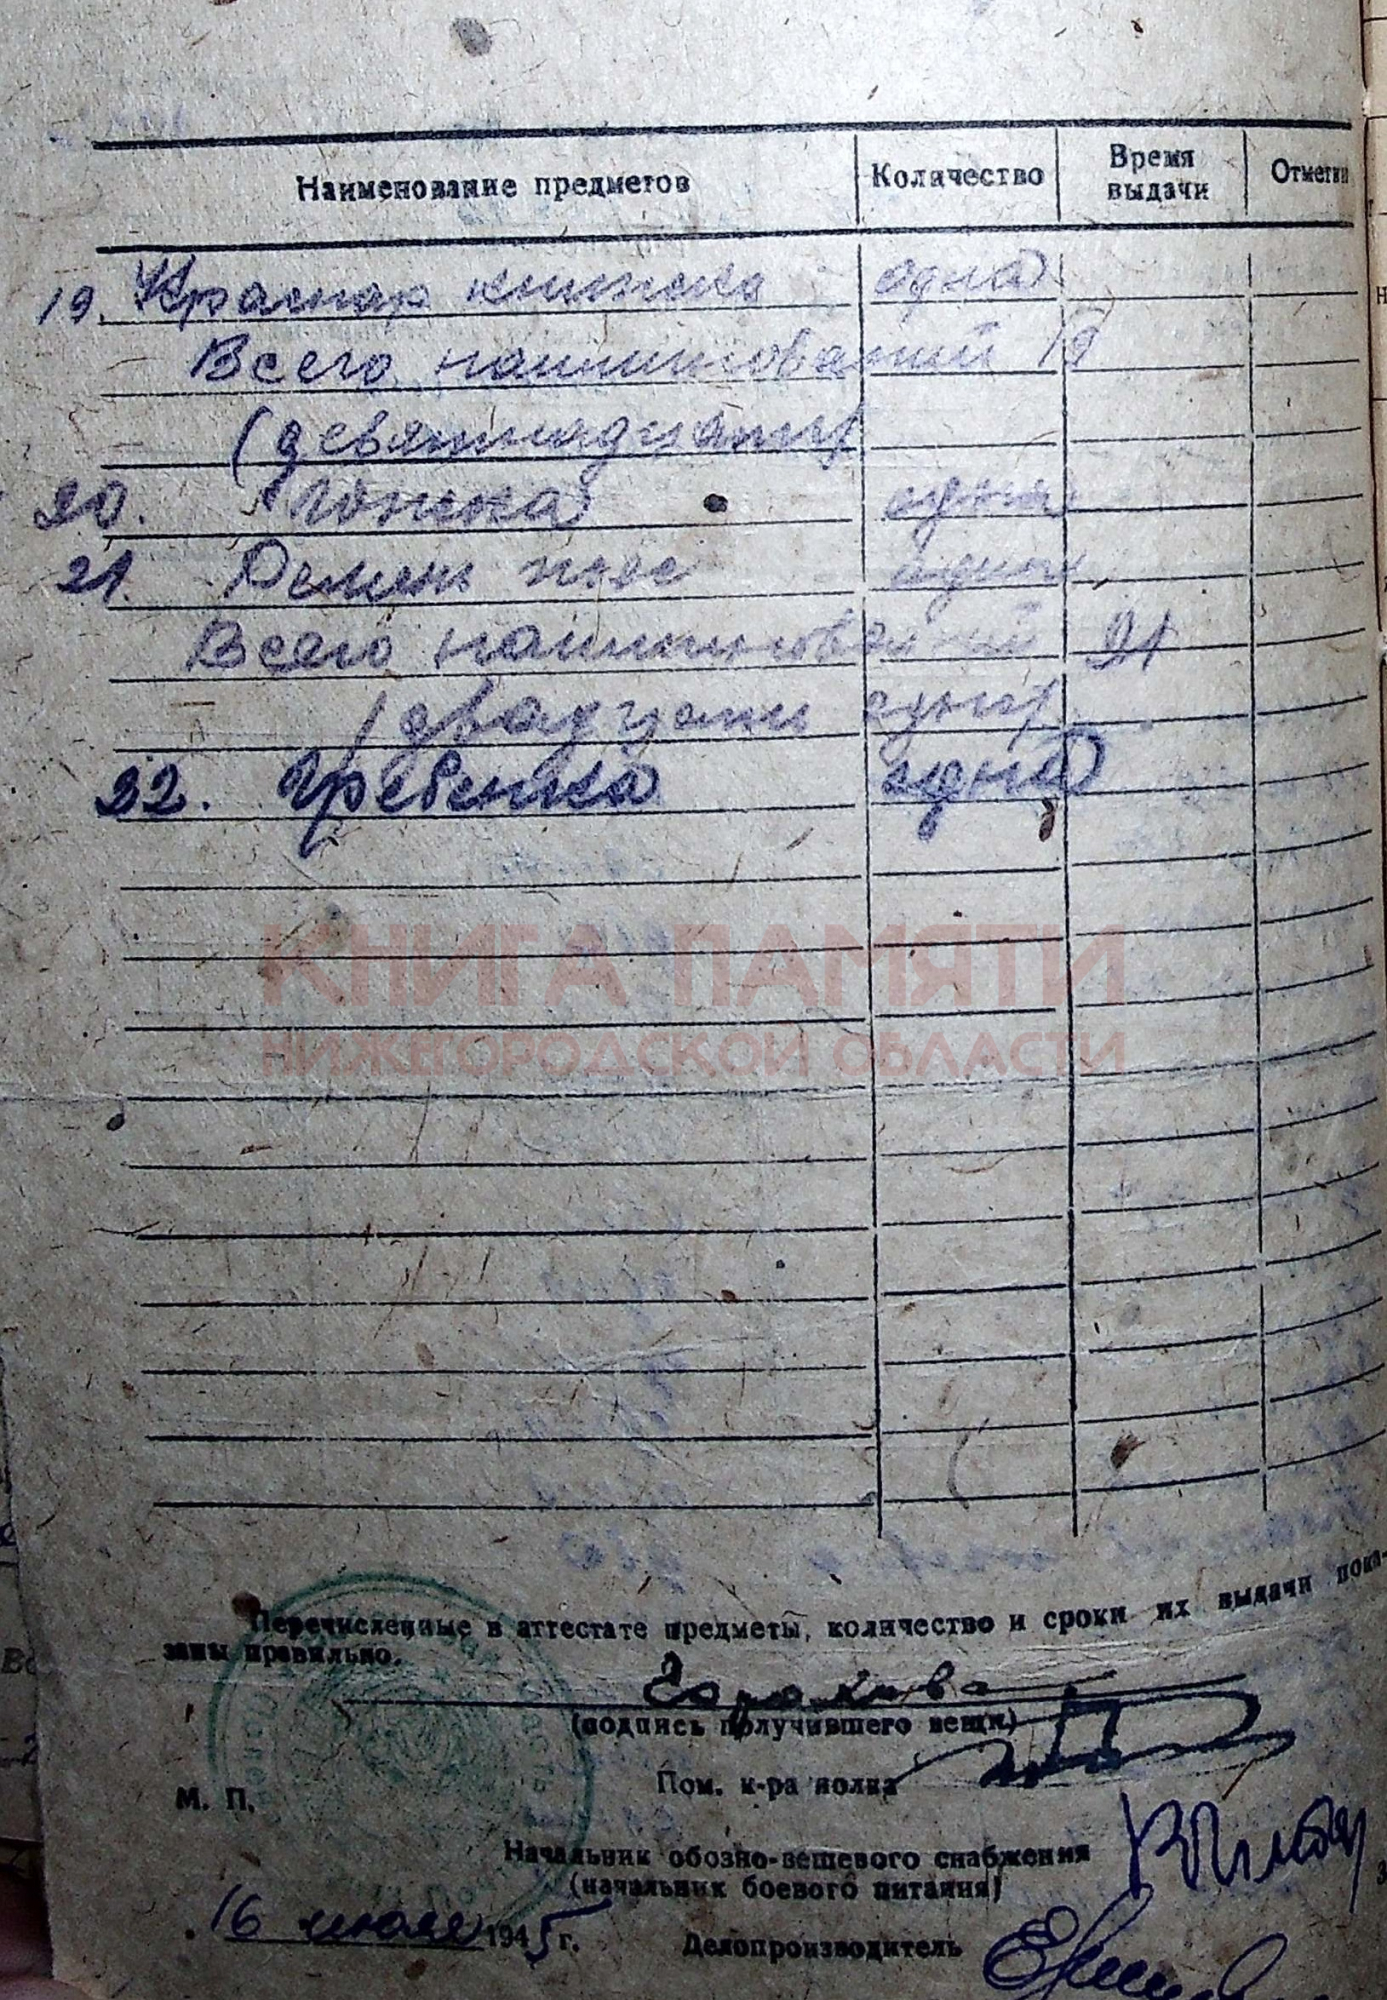 Наименование предметов Количество Время выдачи Отметки
19. Краснар книжка одна
Всего наиминований 19
(девятнадцать)
20. одна
21. Ремень пояс один
Всего наиминований 21
(двадцать один)
22. Гребенка одна
КНИГА ПАМЯТИ
НИЖЕГОРОДСКОЙ ОБЛАСТИ
Перечисленные в аттестате предметы, количество и сроки их выдачи пока-
заны правильно.
(подпись получившего вещи)
Пом. к-ра полка
М. П.
Начальник обозно-вещевого снабжения
(начальник боевого питания)
16 июля 1945 г. Делопроизводитель